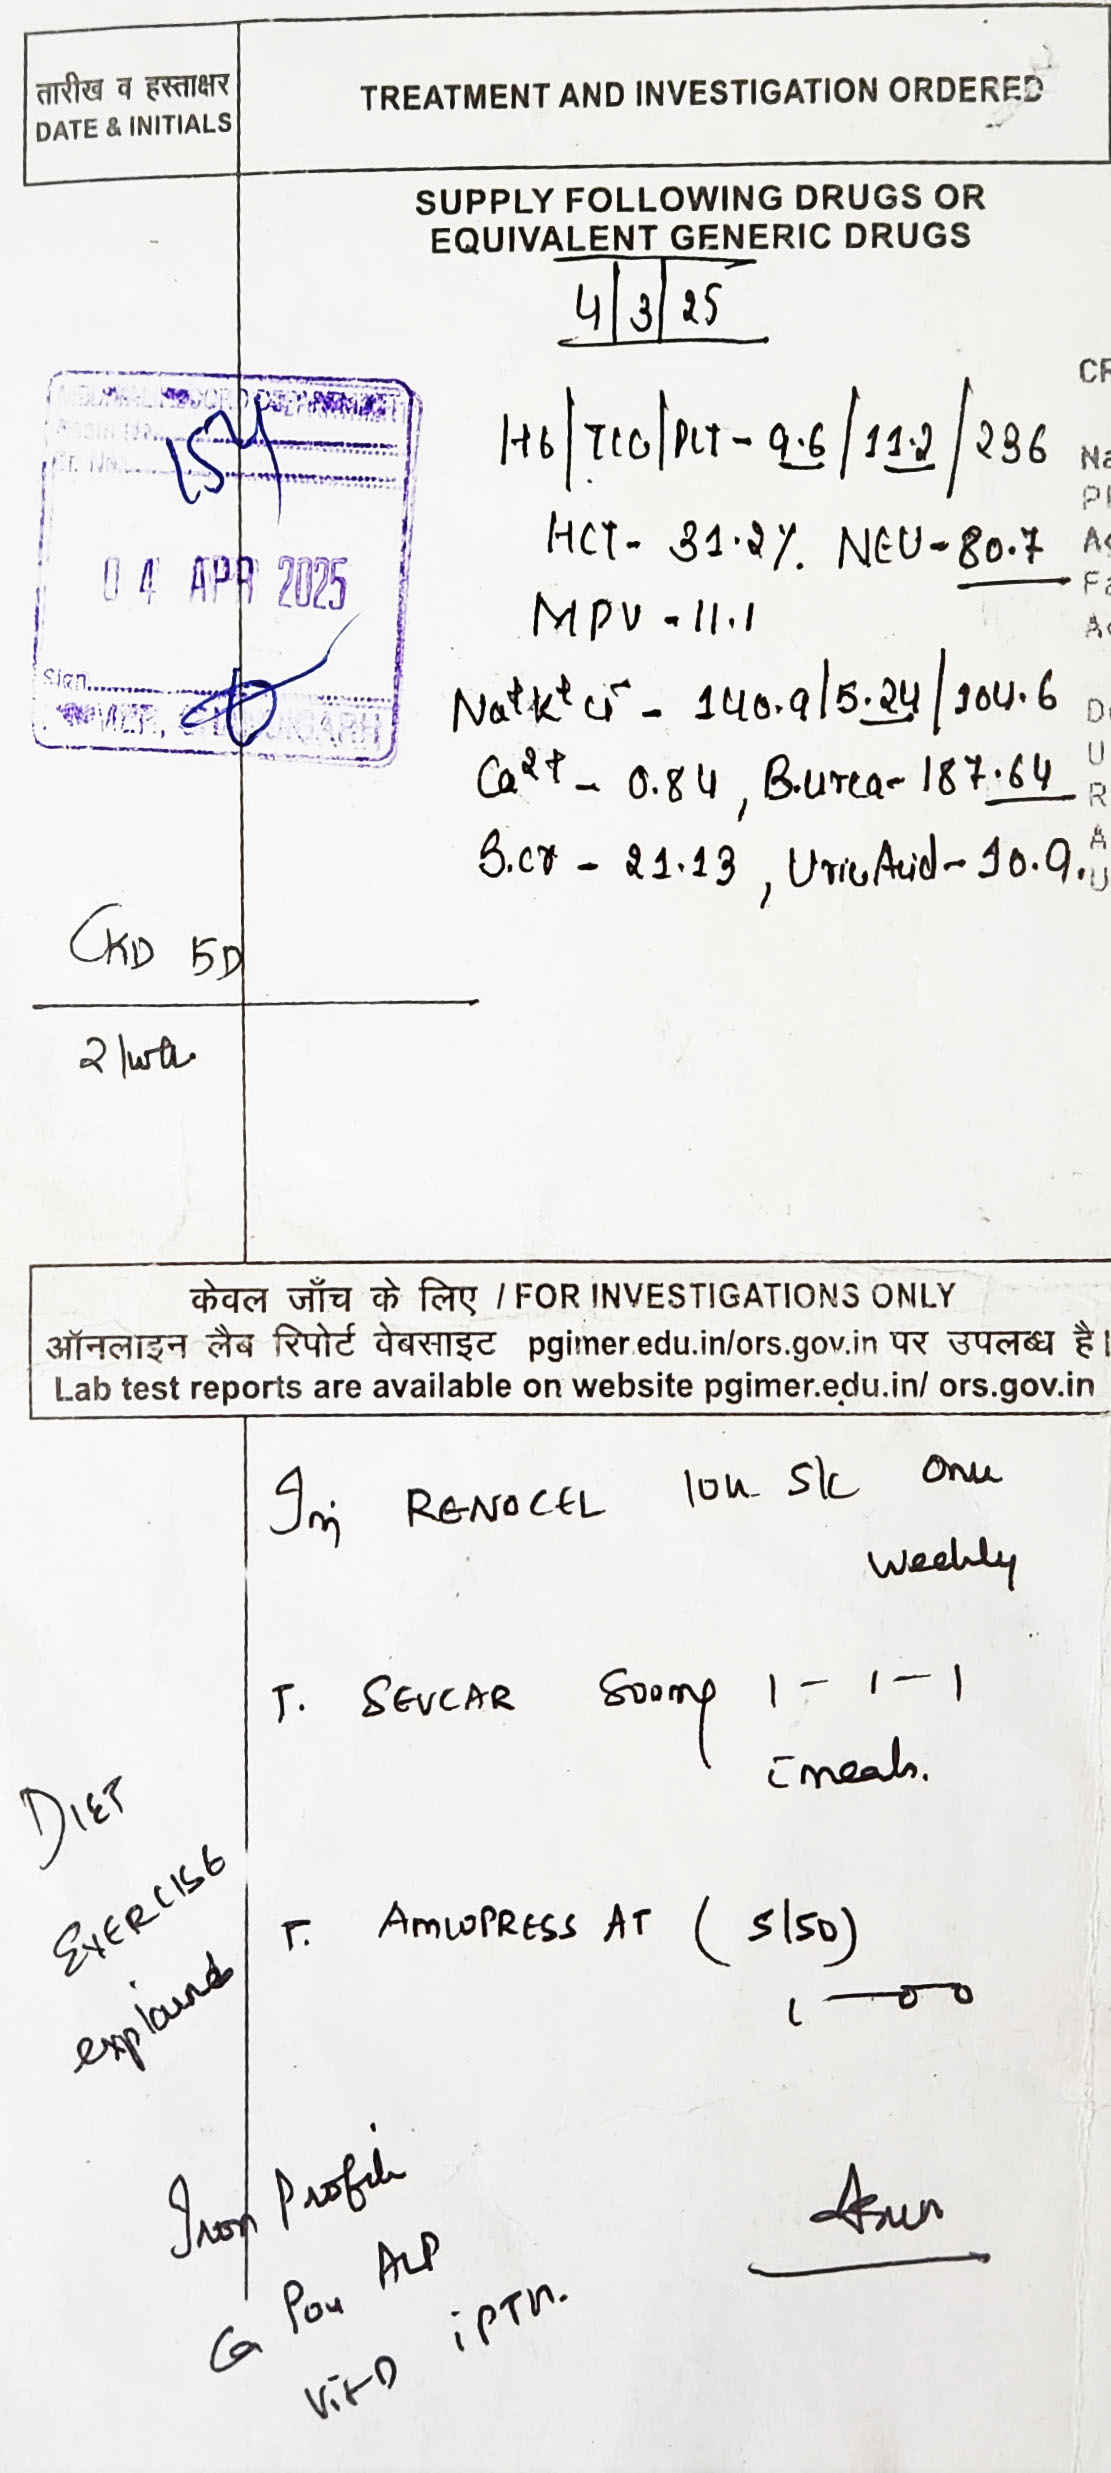 तारीख व हस्ताक्षर
DATE & INITIALS
TREATMENT AND INVESTIGATION ORDERED
SUPPLY FOLLOWING DRUGS OR
EQUIVALENT GENERIC DRUGS
4/3/25
Hb/TLC/PLT - 9.6/11.2/236
HCT - 31.2%. NEU - 80.7
MPV - 11.1
Na+K+Cl- - 140.9/5.24/104.6
Ca2+ - 0.84, B.urea - 187.64
S.cr - 21.13, Uric Acid - 10.9.
154
04 APR 2025
Sign
CKD 5D
2/wk.
केवल जाँच के लिए / FOR INVESTIGATIONS ONLY
ऑनलाइन लैब रिपोर्ट वेबसाइट pgimer.edu.in/ors.gov.in पर उपलब्ध है।
Lab test reports are available on website pgimer.edu.in/ ors.gov.in
Inj RENOCEL 10u S/C once
weekly
T. SEVCAR 800mg 1 - 1 - 1
c meals.
T. AMLOPRESS AT (5/50)
1 - 0 - 0
DIET
EXERCISE
explained
Iron Profile
Ca PO4 ALP
Vit D iPTH.